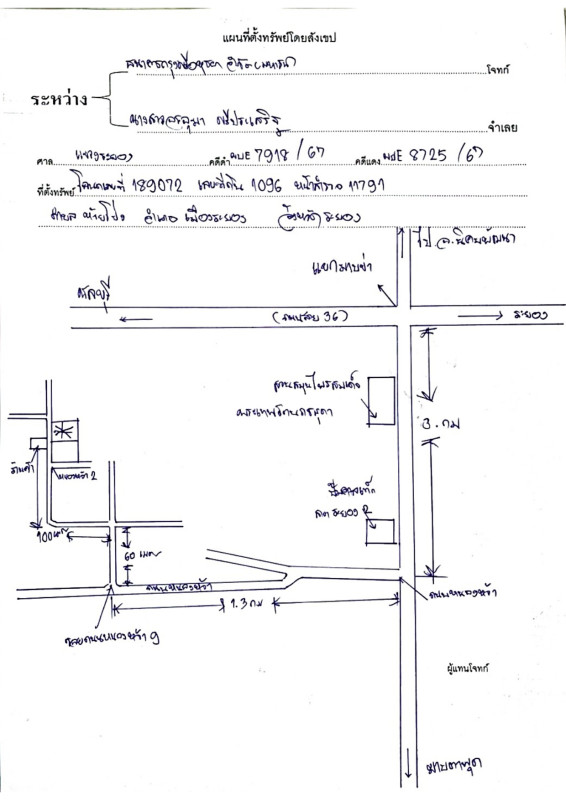 แผนที่ตั้งทรัพย์โดยสังเขป
ธนาคารกรุงศรีอยุธยา จำกัด (มหาชน) โจทก์
ระหว่าง
นางสาวอรอุมา ศรีประเสริฐ จำเลย
ศาล แขวงระยอง คดีดำ ผบE 7918 / 67 คดีแดง ผบE 8725 / 67
ที่ตั้งทรัพย์ โฉนดเลขที่ 189072 เลขที่ดิน 1096 หน้าสำรวจ 11791
ตำบล ห้วยโป่ง อำเภอ เมืองระยอง จังหวัด ระยอง
ไป อ.นิคมพัฒนา
แยกมาบข่า
ชลบุรี
(ถนนสาย 36)
ระยอง
สวนสมุนไพรสมเด็จ
พระเทพรัตนราชสุดา
3. กม
ร้านค้า
หนองหว้า 2
ระยอง 2
100 เมตร
60 เมตร
ถนนหนองหว้า
ถนนหนองหว้า
1.3 กม
ซอยถนนหนองหว้า 9
ผู้แทนโจทก์
มาบตาพุด